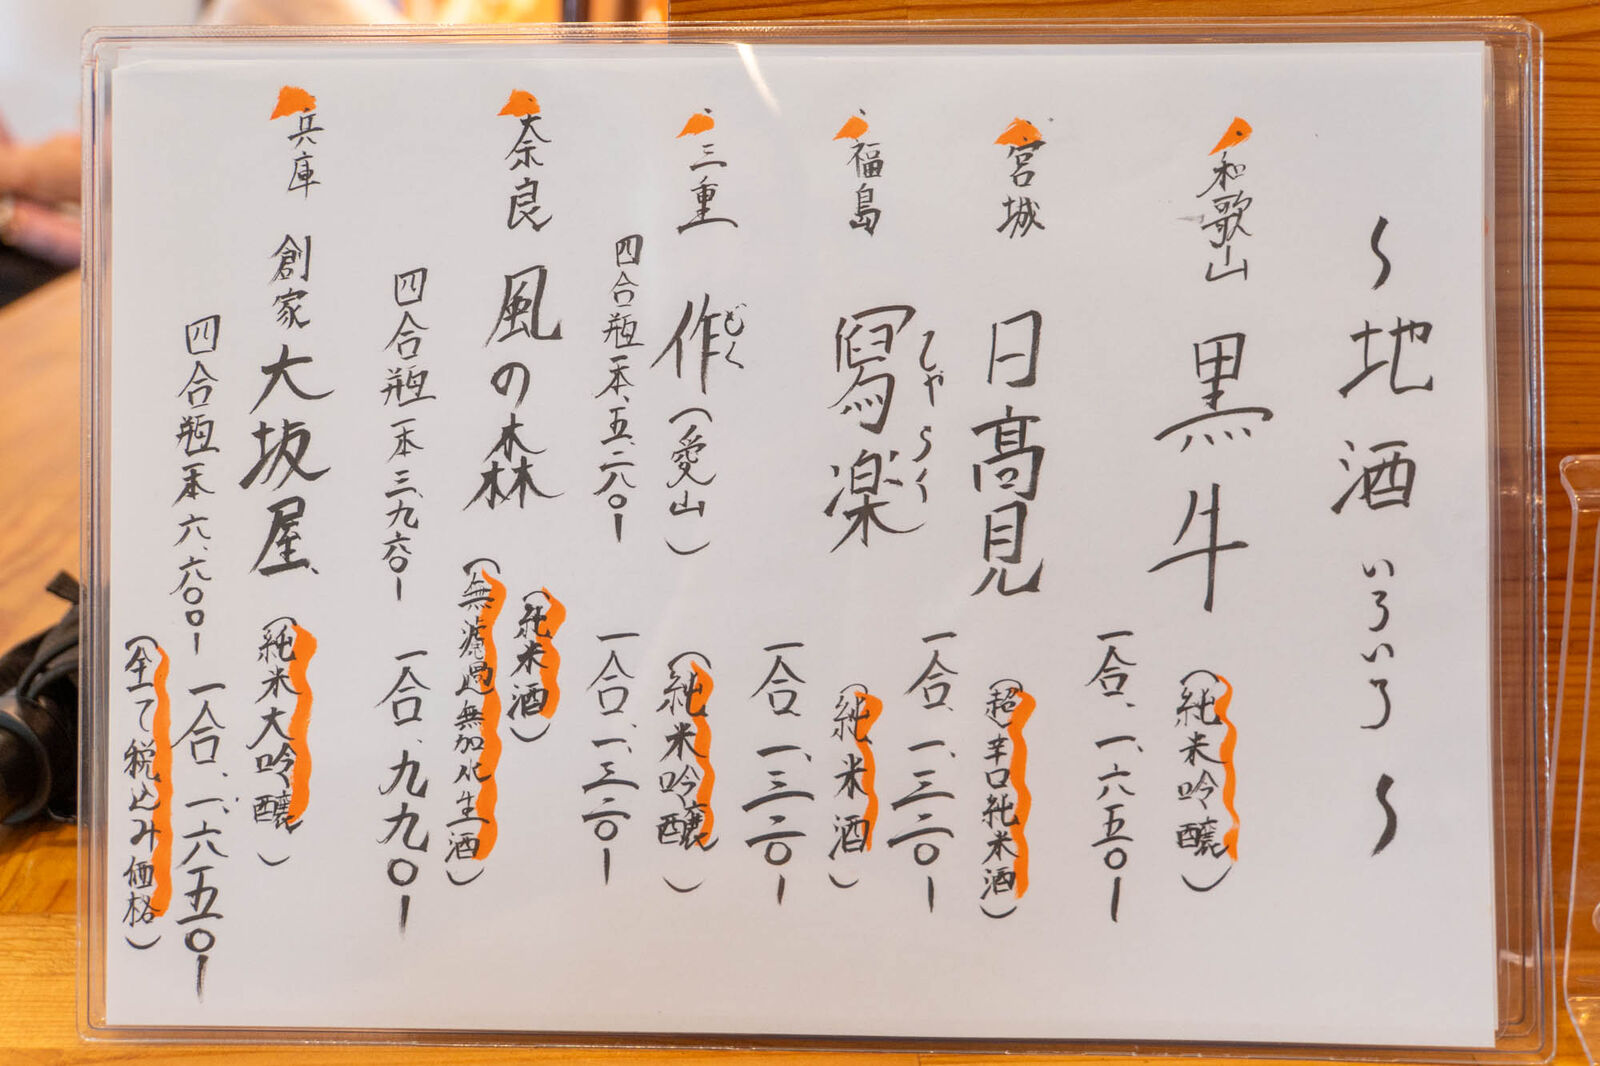 〜地酒いろいろ〜
和歌山 黒牛 (純米吟醸)
一合、一、六五〇ー
宮城 日高見 (超辛口純米酒)
一合、一、三二〇ー
福島 冩楽 (純米酒)
しゃらく
一合、一、三二〇ー
三重 作 (愛山) (純米吟醸)
ざく
四合瓶一本、五、二八〇ー 一合、一、三二〇ー
奈良 風の森 (純米酒)
(無濾過無加水生酒)
四合瓶一本 三、九六〇ー 一合、九九〇ー
兵庫 創家 大坂屋 (純米大吟醸)
四合瓶一本 六、六〇〇ー 一合、一、六五〇ー
(全て税込み価格)